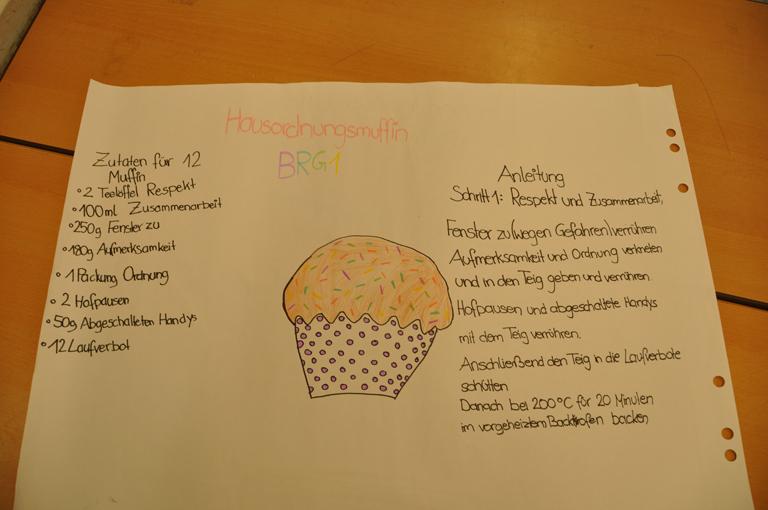 Hausordnungsmuffin
BRG1
Zutaten für 12
Muffin
• 2 Teelöffel Respekt
• 100ml Zusammenarbeit
• 250g Fenster zu
• 180g Aufmerksamkeit
• 1 Packung Ordnung
• 2 Hofpausen
• 50g Abgeschalteten Handys
• 12 Laufverbot
Anleitung
Schritt 1: Respekt und Zusammenarbeit,
Fenster zu (wegen Gefahren) verrühren
Aufmerksamkeit und Ordnung verkneten
und in den Teig geben und verrühren.
Hofpausen und abgeschaltete Handys
mit dem Teig verrühren.
Anschließend den Teig in die Laufverbote
schütten
Danach bei 200°C für 20 Minuten
im vorgeheiztem Backofen backen